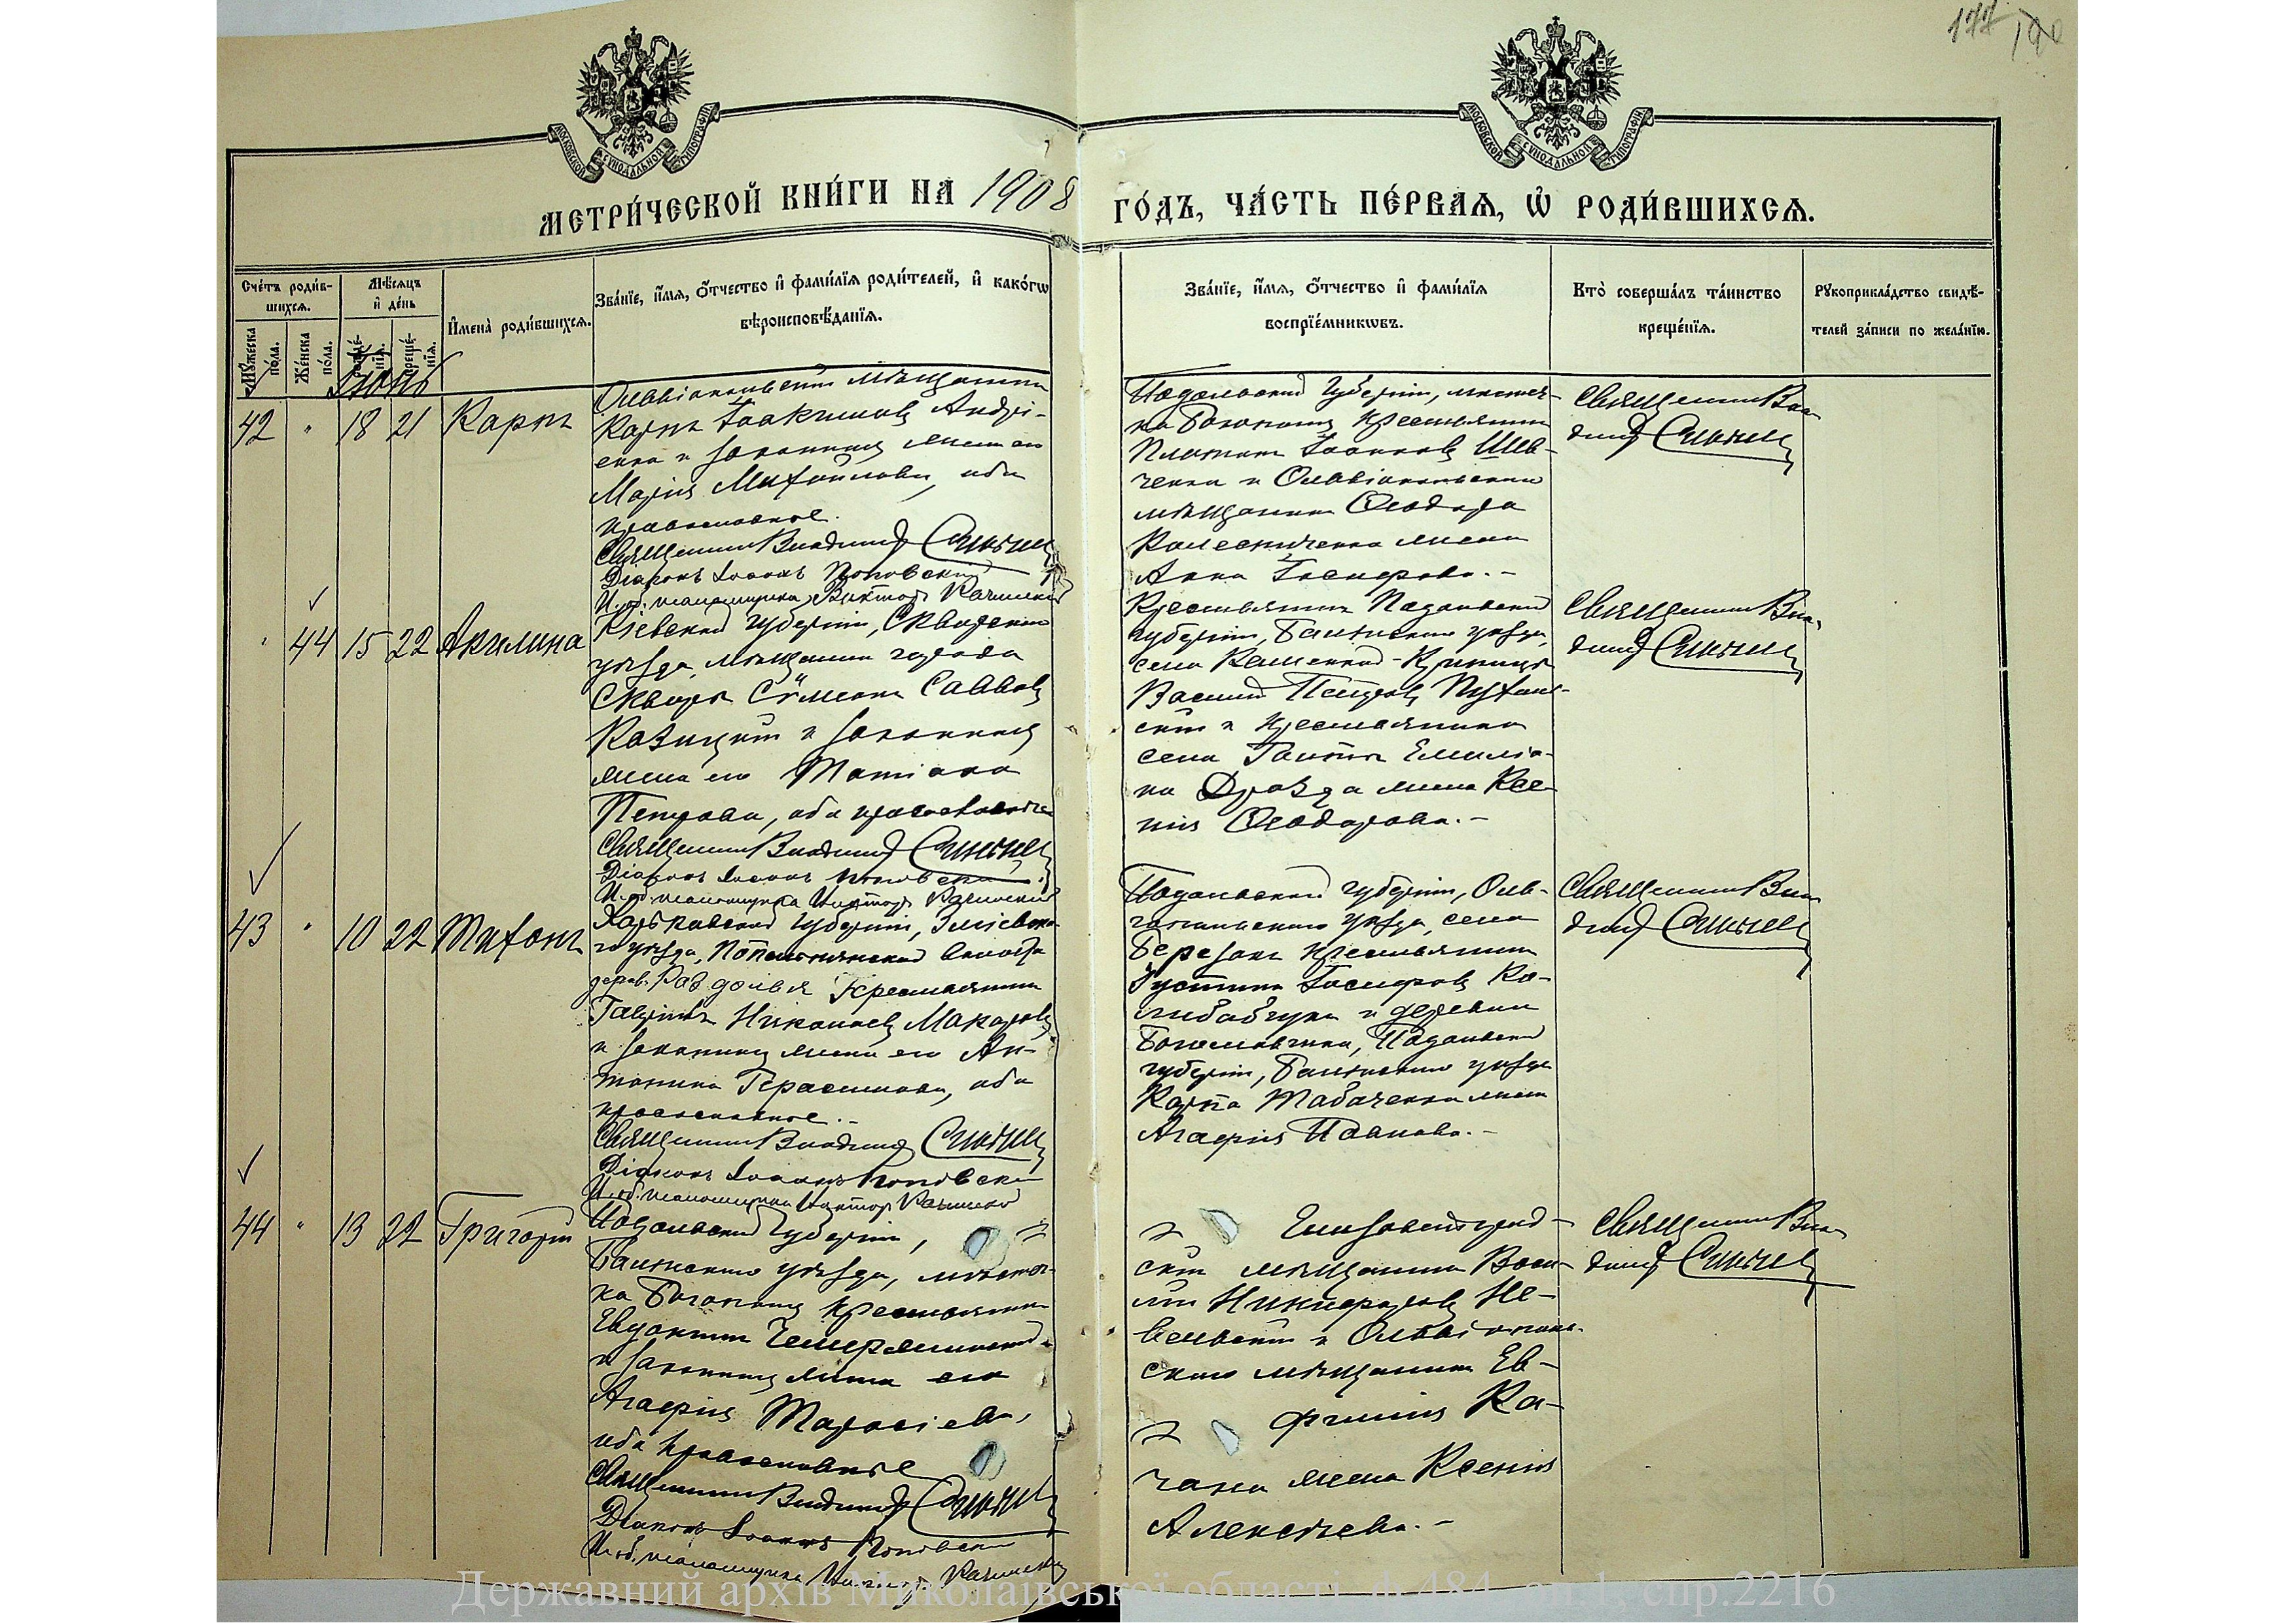 177 190
МОСКОВСКОЙ СѴНОДАЛЬНОЙ ТИПОГРАФІИ
МОСКОВСКОЙ СѴНОДАЛЬНОЙ ТИПОГРАФІИ
МЕТРИ́ЧЕСКОЙ КНИ́ГИ НА 1908 ГО́ДЪ, ЧА́СТЬ ПЕ́РВАЯ, Ѡ҆ РОДИ́ВШИХСЯ.
Сче́тъ роди́в-
шихся.
Мꙋ́жеска по́ла.
Же́нска по́ла.
Мѣ́сяцъ
и҆ де́нь
рожде́-
нїя.
креще́-
нїя.
И҆мена̀ роди́вшихся.
Зва́нїе, и҆́мя, ѻ҆́тчество и҆ фами́лїя роди́телей, и҆ како́гѡ
вѣроисповѣ́данїя.
Зва́нїе, и҆́мя, ѻ҆́тчество и҆ фами́лїя
воспрїе́мникѡвъ.
Кто̀ соверша́лъ та́инство
креще́нїя.
Рꙋкоприкла́дство свидѣ́-
телей за́писи по жела́нїю.
Іюнь
42 " 18 21 Карпъ
Ольвіопольскій мѣщанинъ
Карпъ Іоакимовъ Андрі-
енко и законная жена его
Марія Михайлова, оба
православные.
Священникъ Владимир Синьцев
Діаконъ Іоаннъ Поповскій
И. об. псаломщика Викторъ
Подольской губерніи, местеч-
ка Богополя крестьянинъ
Платонъ Іоанновъ Шев-
ченко и Ольвіопольскаго
мѣщанина Ѳеодора
Колесниченка жена
Анна Іосифова. -
Священникъ Вла-
димір
" 44 15 22 Акилина
Кіевской губерніи, Сквирскаго
уѣзда, мѣщанин города
Сквиры Сѵмеонъ Саввовъ
Козицкій и законная
жена его Татіана
Петрова, оба православные
Священникъ Владимир
Діаконъ Іоаннъ Поповскій
И. об. псаломщика Викторъ
Крестьянинъ Подольской
губерніи, Балтскаго уѣзда,
села Каменной-Криницы
Василій Петровъ
скій и крестьянина
села Емилiа-
на Дрозда жена Ксе-
нія Ѳеодорова. -
Священникъ Вла-
димір
43 " 10 22 Тихонъ
Харьковской губерніи, Зміевска-
го уѣзда, волости
дерев. Раздолья крестьянинъ
Гавріилъ Николаевъ Макаровъ
и законная жена его Ан-
тонина Герасимова, оба
православные. -
Священникъ Владимир
Діаконъ Іоаннъ Поповскій
И. об. псаломщика Викторъ
Подольской губерніи, Оль-
гопольскаго уѣзда, села
Березокъ крестьянинъ
Іустинъ Іосифовъ Ко-
и деревни
Подольской
губерніи, Балтскаго уѣзда
Карпа Табаченка жена
Агафія Павлова. -
Священникъ Вла-
димір
44 " 13 22 Григорій
Подольской губерніи,
Балтскаго уѣзда, мѣстеч-
ка Богополя крестьянинъ
Евдокимъ
и законная жена его
Агафія Тарасіева,
оба православные
Священникъ Владимир
Діаконъ Іоаннъ Поповскій
И. об. псаломщика Викторъ
Елисаветград-
скій мѣщанинъ Васи-
лій Никифоровъ Не-
вельскій и Ольвіополь-
скаго мѣщанина Ев-
фимія Ка-
чана жена Ксенія
Алексѣева. -
Священникъ Вла-
димір
Державний архів Миколаївської області, ф.484, оп.1, спр.2216